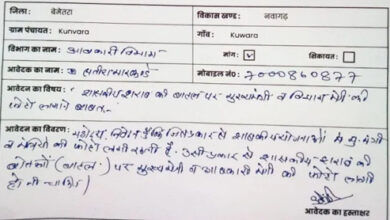 जिला: बेमेतरा विकास खण्ड: नवागढ़
ग्राम पंचायत: Kunvara गाँव: Kuwara
विभाग का नाम: आबकारी विभाग मांग: ✓ शिकायत:
आवेदक का नाम: मोबाईल नं०: 7000860877
आवेदक का विषय: शासकीय शराब की बोतल पर मुख्यमंत्री व विभाग मंत्री की
फोटो लगाने बाबत
आवेदक का विवरण: महोदय, निवेदन है कि जिस प्रकार से शासकीय योजनाओं में मु.मंत्री
व मंत्रियों की फोटो लगी रहती है. उसी प्रकार से शासकीय शराब की
बोतलों (बाटल) पर मुख्यमंत्री व आबकारी मंत्री की फोटो लगनी
होनी चाहिए
आवेदक का हस्ताक्षर